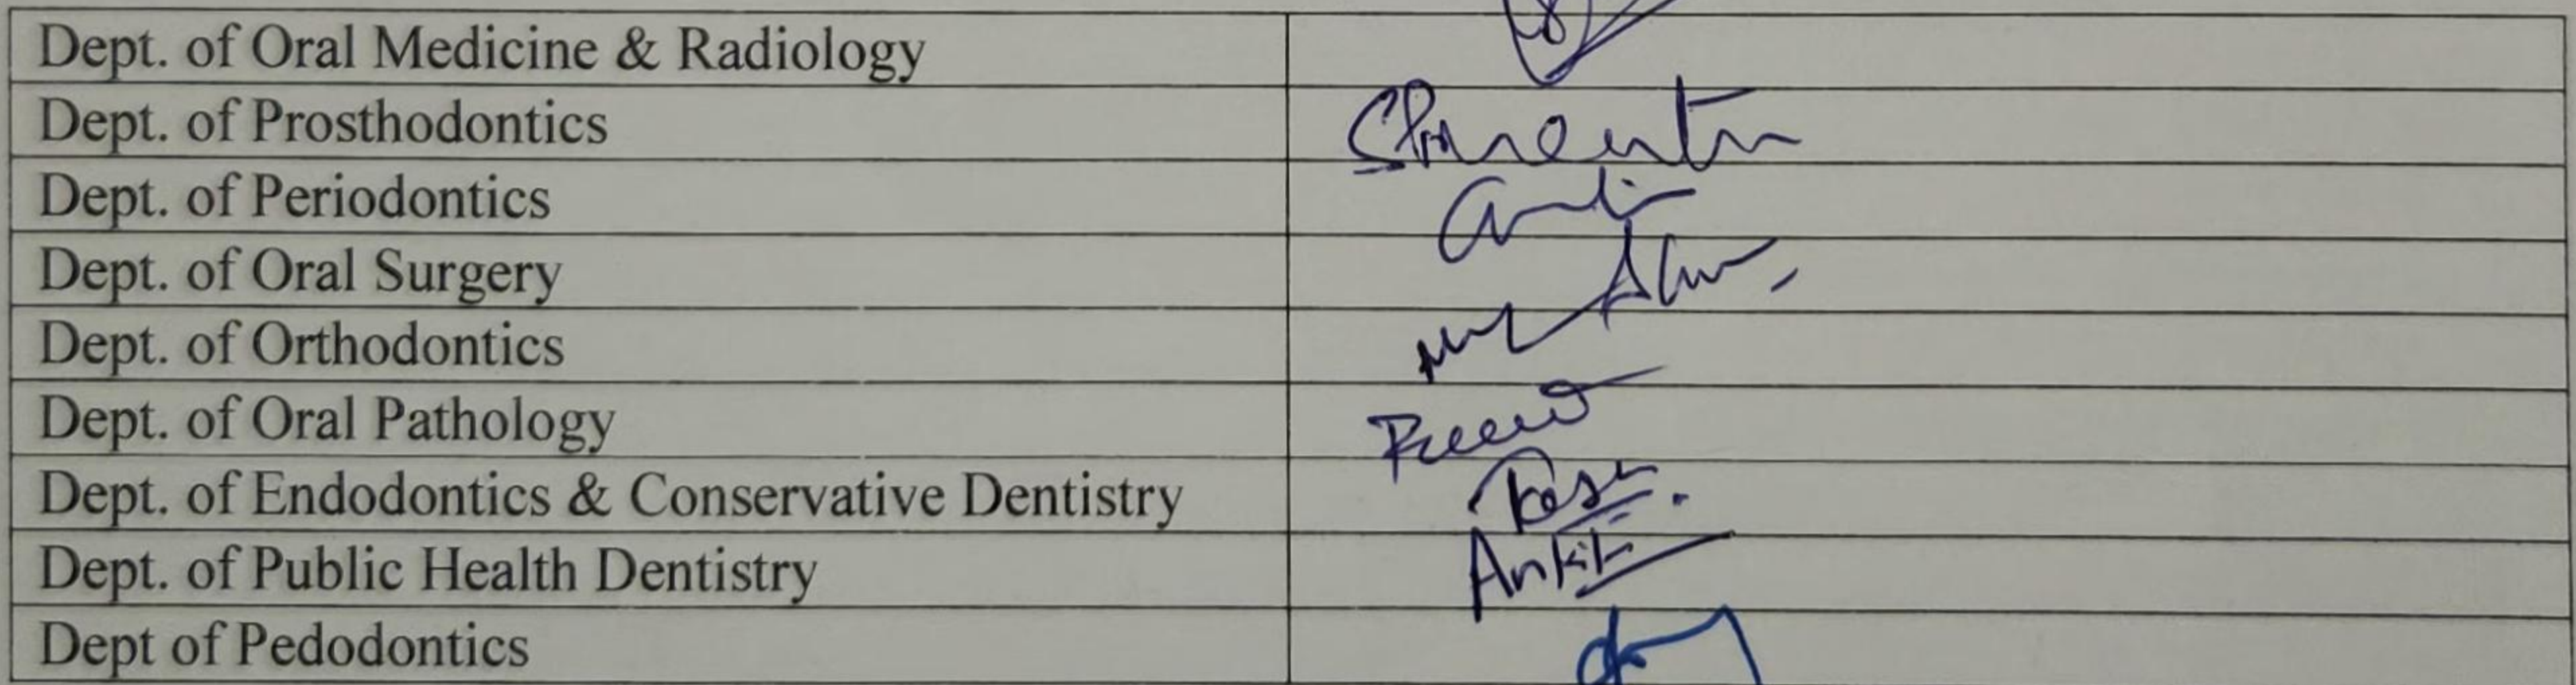 Dept. of Oral Medicine & Radiology
Dept. of Prosthodontics
Dept. of Periodontics
Dept. of Oral Surgery
Dept. of Orthodontics
Dept. of Oral Pathology
Dept. of Endodontics & Conservative Dentistry
Dept. of Public Health Dentistry Ankit
Dept of Pedodontics